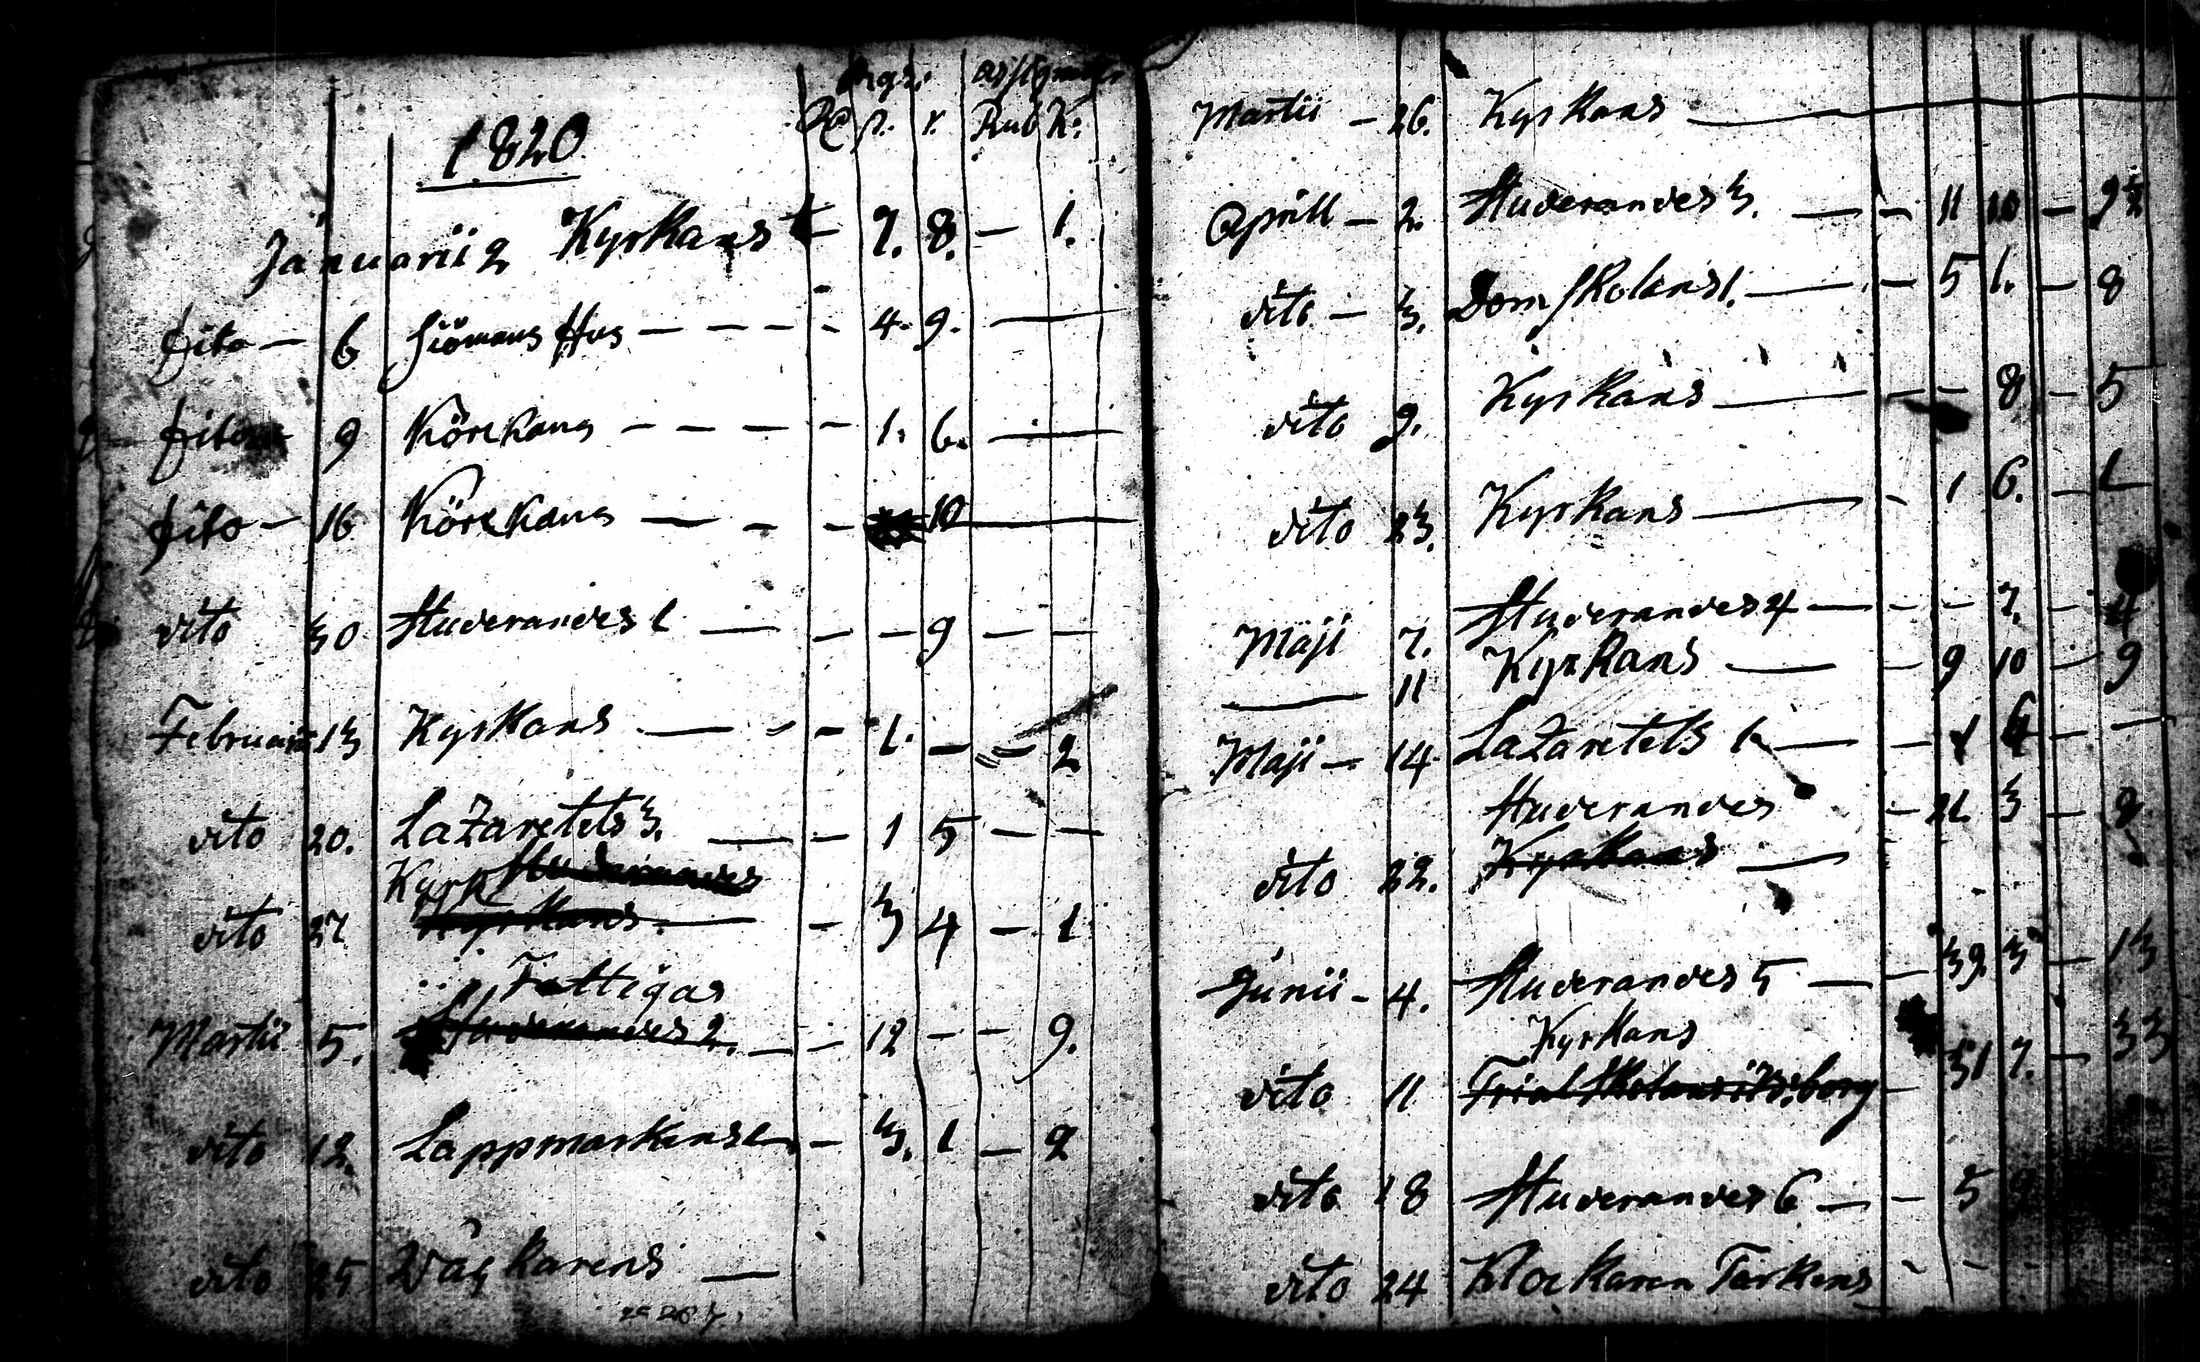 1820
Rub K:
Januarii 2 Kyrkans — 7. 8. — 1.
dito — 6 Siömans Hus — — — — 4. 9. —
dito 9 Körckans — — — — 1. 6. —
dito — 16 Körckans — — — 10 —
dito 30 Studerandes 1 — — — 9 — —
Februarii 13 Kyrkans — — — 1. — — 2
dito 20. LaZaretets 3. — — 1 5 — —
Kyrk Studerandes
dito 27. Kyrkans. — — 3 4 — 1
Fattigas
Martii 5. Studerandes 2. — — 12 — — 9.
dito 12. Lappmarkens — 3. 1 — 2
dito 25 Wäg karens —
Martii — 26. Kyrkans —
Aprill — 2. Studerandes 3. — — 11 10 — 9½
dito — 3. Dom skolans 1. — — 5 1. — 8
dito 9. Kyrkans — — — 8 — 5
dito 23. Kyrkans — — 1 6. — 1
Maji 7. Studerandes 4 — — — 7. — 4
— 11 Kyrkans — — 9 10 — 9
Maji — 14. LaZaretets 1 — — 1 4 — —
Studerandes — 21. 3 —
dito 22. Kyrkans —
Junii — 4. Studerandes 5 — — 39. 3 — 13
Kyrkans
dito 11 — 51 7. — 33
dito 18 Studerandes 6 — — 5
dito 24 Klockaren Tarkens — — —